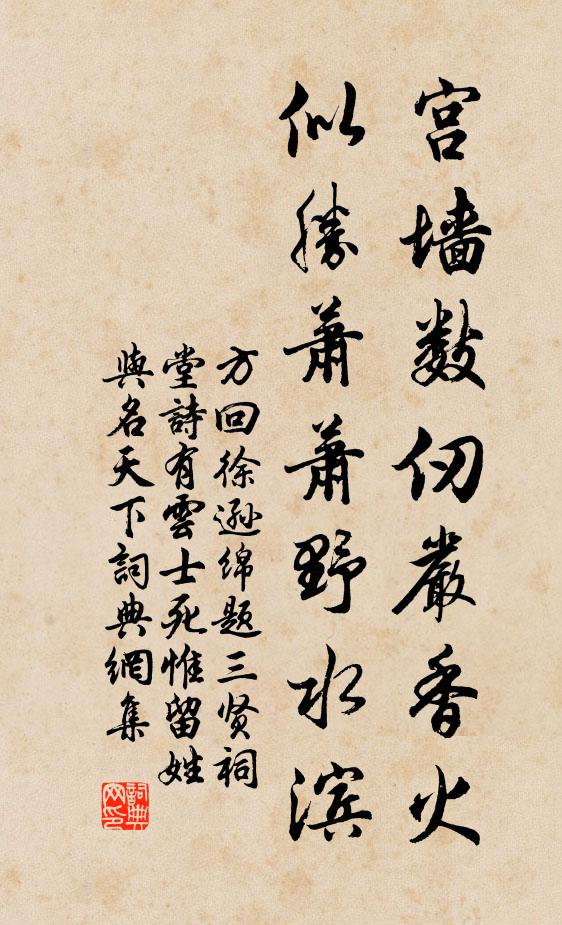 宫墙数仞严香火
似勝蕭蕭野水滨
方回徐逊绵题三贤祠
堂詩有雲士死惟留姓
與名天下詞典網集
詞典
网印